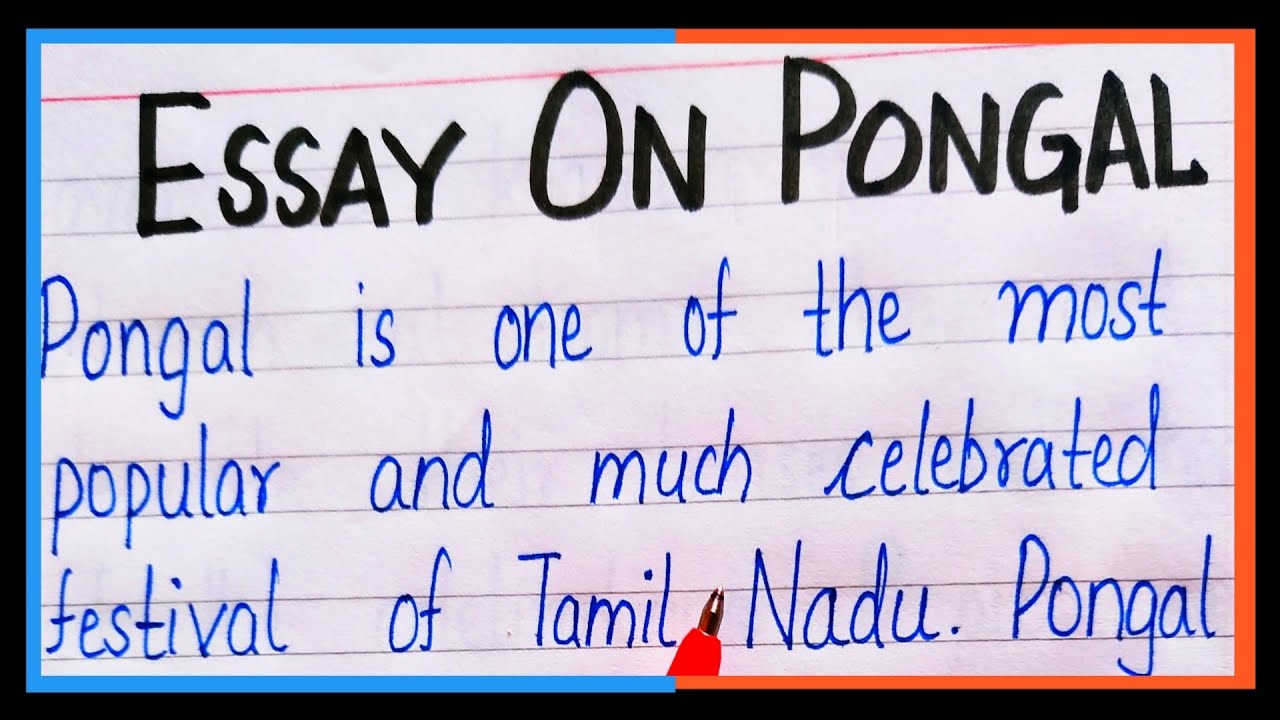 ESSAY ON PONGAL
Pongal is one of the most
popular and much celebrated
festival of Tamil Nadu. Pongal